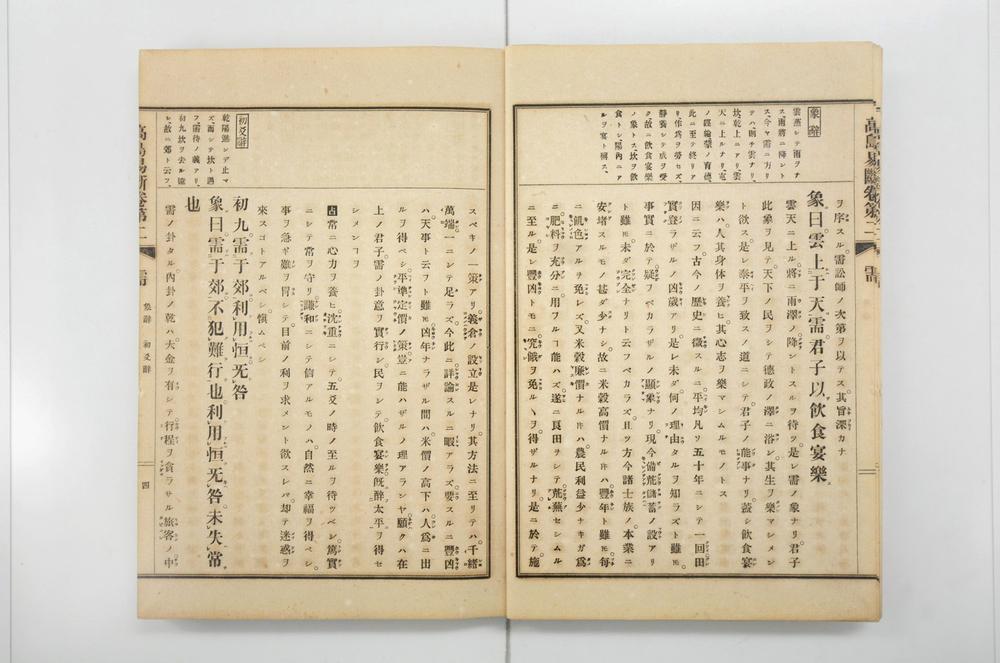 高島易斷卷第二
需
象辭
雲蒸シテ雨ヲナ
ス、雨將ニ降ント
ス、今マ需ニ方リ
テハ則チ雲ナリ、
坎、乾上ニアリ、雲
天ニ上ルナリ、屯
ノ經綸、蒙ノ育德、
此ニ至テ終リア
リ、作爲ヲ勞セズ、
靜養シテ成ヲ受
ク、故ニ飲食宴樂
ノ象トス、坎ヲ飲
食トシ、陽內ニア
ルヲ宴ト稱ス、
ヲ序スル。需訟師ノ次第ヲ以テス。其旨深カナ
象曰雲上于天需君子以飲食宴樂
雲天ニ上ル。將ニ雨澤ノ降ントスルヲ待ツ。是レ需ノ象ナリ。君子
此象ヲ見テ。天下ノ民ヲシテ德政ノ澤ニ浴シ。其生ヲ樂マシメン
ト欲ス。是レ泰平ヲ致スノ道ニシテ。君子ノ能事ナリ。蓋シ飲食宴
樂ハ。人其身体ヲ養ヒ。其心志ヲ樂マシムルモノトス
因ニ云フ。古今ノ歷史ニ徵スルニ。平均凡ソ五十年ニシテ。一回田
實登ラザルノ凶歲アリ。是レ未ダ何ノ理由タルヲ知ラズト雖𪜈。
事實ニ於テ疑フベカラザルノ顯象ナリ。現今備荒儲蓄ノ設アリ
ト雖𪜈。未ダ完全ナリト云フベカラズ。且ツ方今諸士族ノ本業ニ
安堵スルモノ甚ダ少ナシ。故ニ米穀高價ナル𪜈ハ。豐年ト雖𪜈。每
ニ飢色アルヲ免レズ。又米穀廉價ナル𪜈ハ。農民利益少ナキガ爲
ニ。肥料ヲ充分ニ用フルヿ能ハズ。遂ニ良田ヲシテ。荒蕪セシムル
ニ至ル。是レ豐凶トモニ。究餓ヲ免ルヽヲ得ザルナリ。是ニ於テ施
スベキノ一策アリ。義倉ノ設立是レナリ。其方法ニ至リテハ。千緖
萬端一ニシテ足ラズ。今此ニ詳論スルニ暇アラズ。要スルニ豐凶
ハ天事ト云フト雖𪜈。凶年ナラザル間ハ。米價ノ高下ハ人爲ニ出
ルヲ得ベシ。平準定價ノ策。豈ニ能ハザルノ理アランヤ。願クハ在
上ノ君子。需ノ卦意ヲ實行シ。民ヲシテ飲食宴樂。既醉太平ヲ得セ
シメンヿヲ
占常ニ心力ヲ養ヒ沈重ニシテ。五爻ノ時ノ至ルヲ待ツベシ。篤實
ニシテ常ヲ守リ。謙和ニシテ信アルモノハ。自然ニ幸福ヲ得ベシ。
事ヲ急ギ。難ヲ冒シテ。目前ノ利ヲ求メント欲スレバ。却テ迷惑ヲ
來スコトアルベシ。愼ムベシ
初爻辭
乾陽進ンデ止マ
ズ、而シテ坎ト遇
フ、需待ノ義アリ、
初九坎ヲ去ル遠
シ、故ニ郊ト云フ、
初九需于郊利用恒无咎
象曰需于郊不犯難行也利用恒无咎未失常
也
需ノ卦タル。內卦ノ乾ハ。大金ヲ有シテ。行程ヲ貪ラサル。旅客ノ中
高島易斷卷第二
需
象辭 初爻辭
四